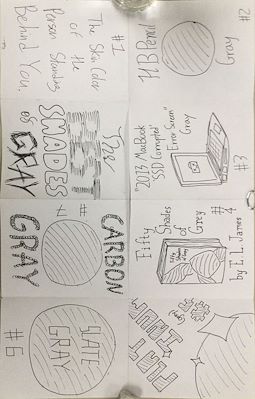 The
BEST
SHADES
of
GRAY
#1
The Skin Color
of the
Person Standing
Behind You.
#2
HB Pencil
Gray
#3
"2013 MacBook
"SSD Corrupted"
Error Screen"
Gray
#4
Fifty Shades
of Grey
by E.L. James
PLATINUM
(Gray)
#6
SLATE
GRAY
#7
CARBON
GRAY